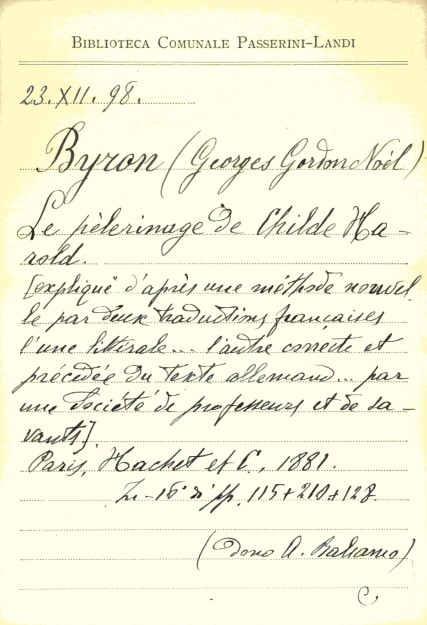 BIBLIOTECA COMUNALE PASSERINI-LANDI
23.XII.98.
Byron (Georges Gordon Noël)
Le pèlerinage de Childe Ha-
rold.
[expliqué d'après une méthode nouvel
le par deux traductions françaises
l'une littérale... l'autre correcte et
précédée du texte allemand... par
une Société de professeurs et de sa-
vants].
Paris, Hachet et C., 1881.
In-16° di pp. 115+210+128.
(dono A. Balsamo)
C